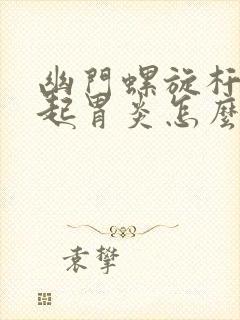 幽門螺旋杆
起胃炎怎麼
袁攀